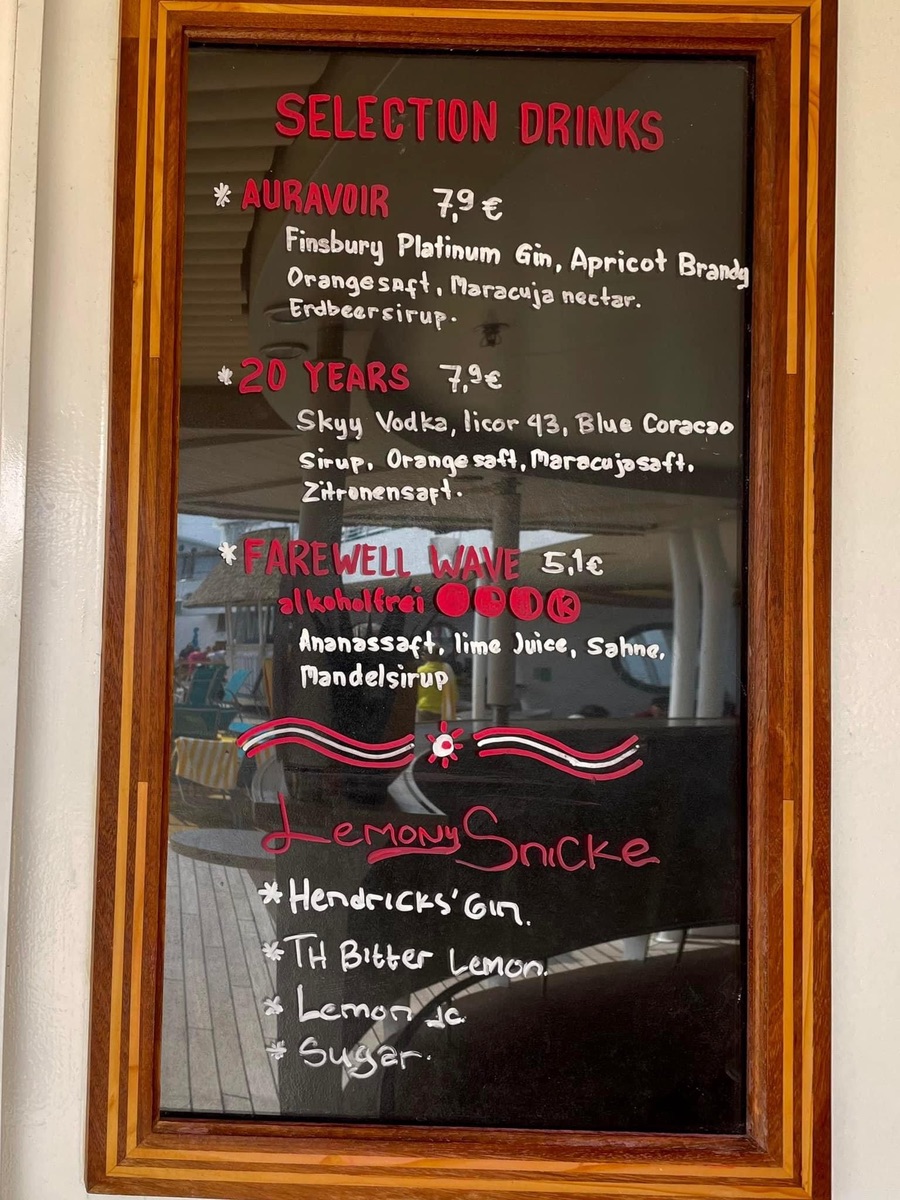 SELECTION DRINKS
* AURAVOIR 7,9 €
Finsbury Platinum Gin, Apricot Brandy
Orangesaft, Maracuja nectar.
Erdbeersirup.
* 20 YEARS 7,9€
Skyy Vodka, licor 43, Blue Coracao
Sirup, Orangesaft, Maracujasaft,
Zitronensaft.
* FAREWELL WAVE 5,1€
alkoholfrei
Ananassaft, lime Juice, Sahne,
Mandelsirup
Lemony Snicke
* Hendricks' Gin.
* TH Bitter Lemon.
* Lemon Jc
* Sugar.